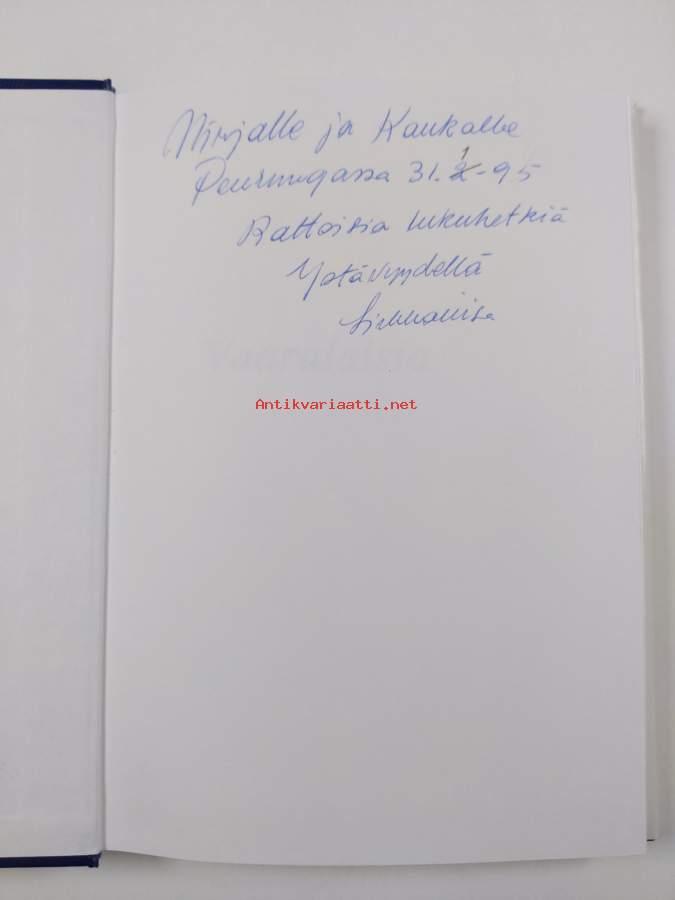 Mirjalle ja Kaukolle
Peurungassa 31.1-95
Rattoisia lukuhetkiä
Ystävyydellä
Sirkkaliisa
Antikvariaatti.net